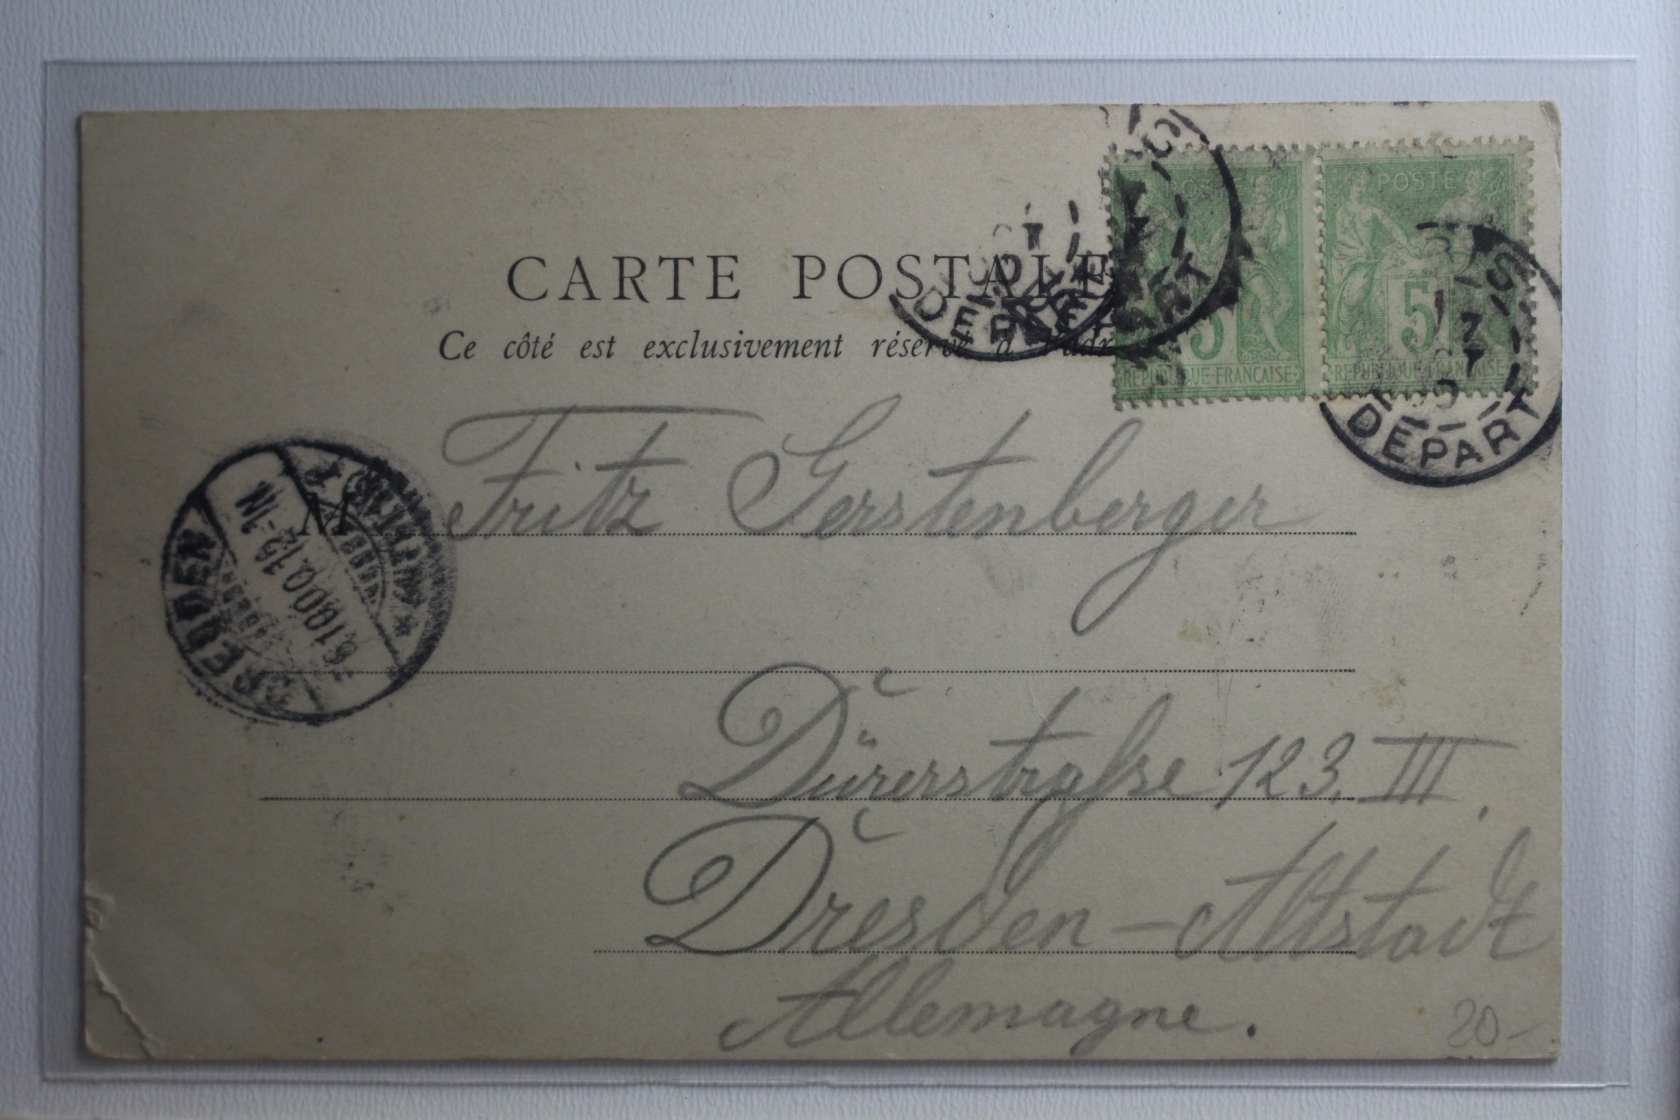 CARTE POSTALE
Ce côté est exclusivement réservé à l'adr
POSTE
5
REPUBLIQUE FRANÇAISE
POSTE
5
REPUBLIQUE FRANÇAISE
DEPART
DEPART
DEPART
DRESDEN
12-1N
M
Fritz Gerstenberger
Dürerstraße 123. III.
Dresden-Altstadt
Allemagne.
20-